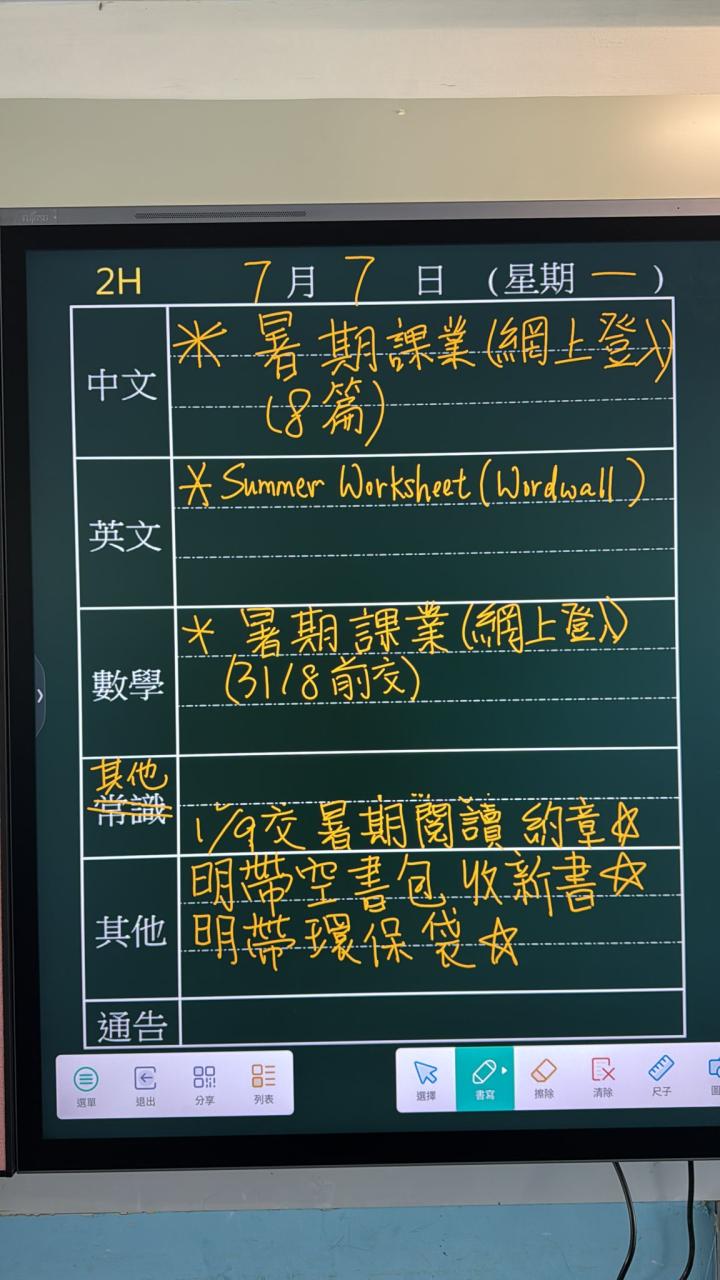 FUJITSU
2H 7月7日 (星期一)
中文
* 暑期課業(網上登入)
(8篇)
英文
* Summer Worksheet (Wordwall)
數學
* 暑期課業(網上登入)
(31/8前交)
其他
常識
1/9交暑期閱讀約章☆
其他
明帶空書包收新書☆
明帶環保袋☆
通告
選單 退出 分享 列表 選擇 書寫 擦除 清除 尺子